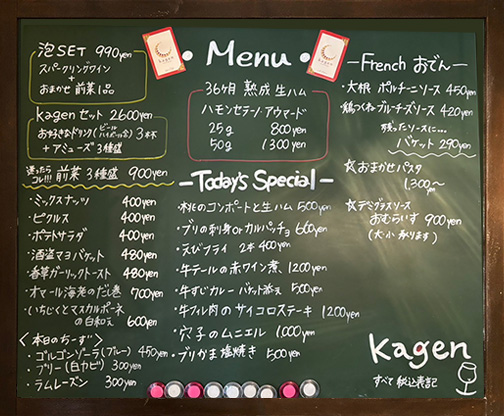 泡SET 990yen
スパークリングワイン
+
おまかせ 前菜1品
kagenセット 2600yen
お好きなドリンク(ビール ハイボール含) 3杯
+アミューズ 3種盛
迷ったらコレ!!! 前菜 3種盛 900yen
・ミックスナッツ 400yen
・ピクルス 400yen
・ポテトサラダ 400yen
・酒盗マヨバケット 480yen
・香草ガーリックトースト 480yen
・オマール海老のだし巻 700yen
・いちじくとマスカルポーネの白和え 600yen
〈本日のちーず〉
・ゴルゴンゾーラ(ブルー) 450yen
・ブリー(白カビ) 300yen
・ラムレーズン 300yen
kagen
・Menu・
kagen
36ヶ月 熟成 生ハム
ハモンセラーノ・アウマード
25g 800yen
50g 1300yen
-Today's Special-
・桃のコンポートと生ハム 500yen
・ブリの刺身のカルパッチョ 600yen
・えびフライ 2本 400yen
・牛テールの赤ワイン煮 1200yen
・牛すじカレー バケット添え 500yen
・牛フィレ肉のサイコロステーキ 1200yen
・穴子のムニエル 1,000yen
・ブリかま塩焼き 500yen
-French おでん-
・大根 ポルチーニソース 450yen
・鶏つくねブルーチーズソース 420yen
残ったソースに…
バケット 290yen
☆おまかせパスタ
1,300yen〜
☆デミグラスソース
おむらいす 900yen
(大・小 承ります)
kagen
すべて 税込表記